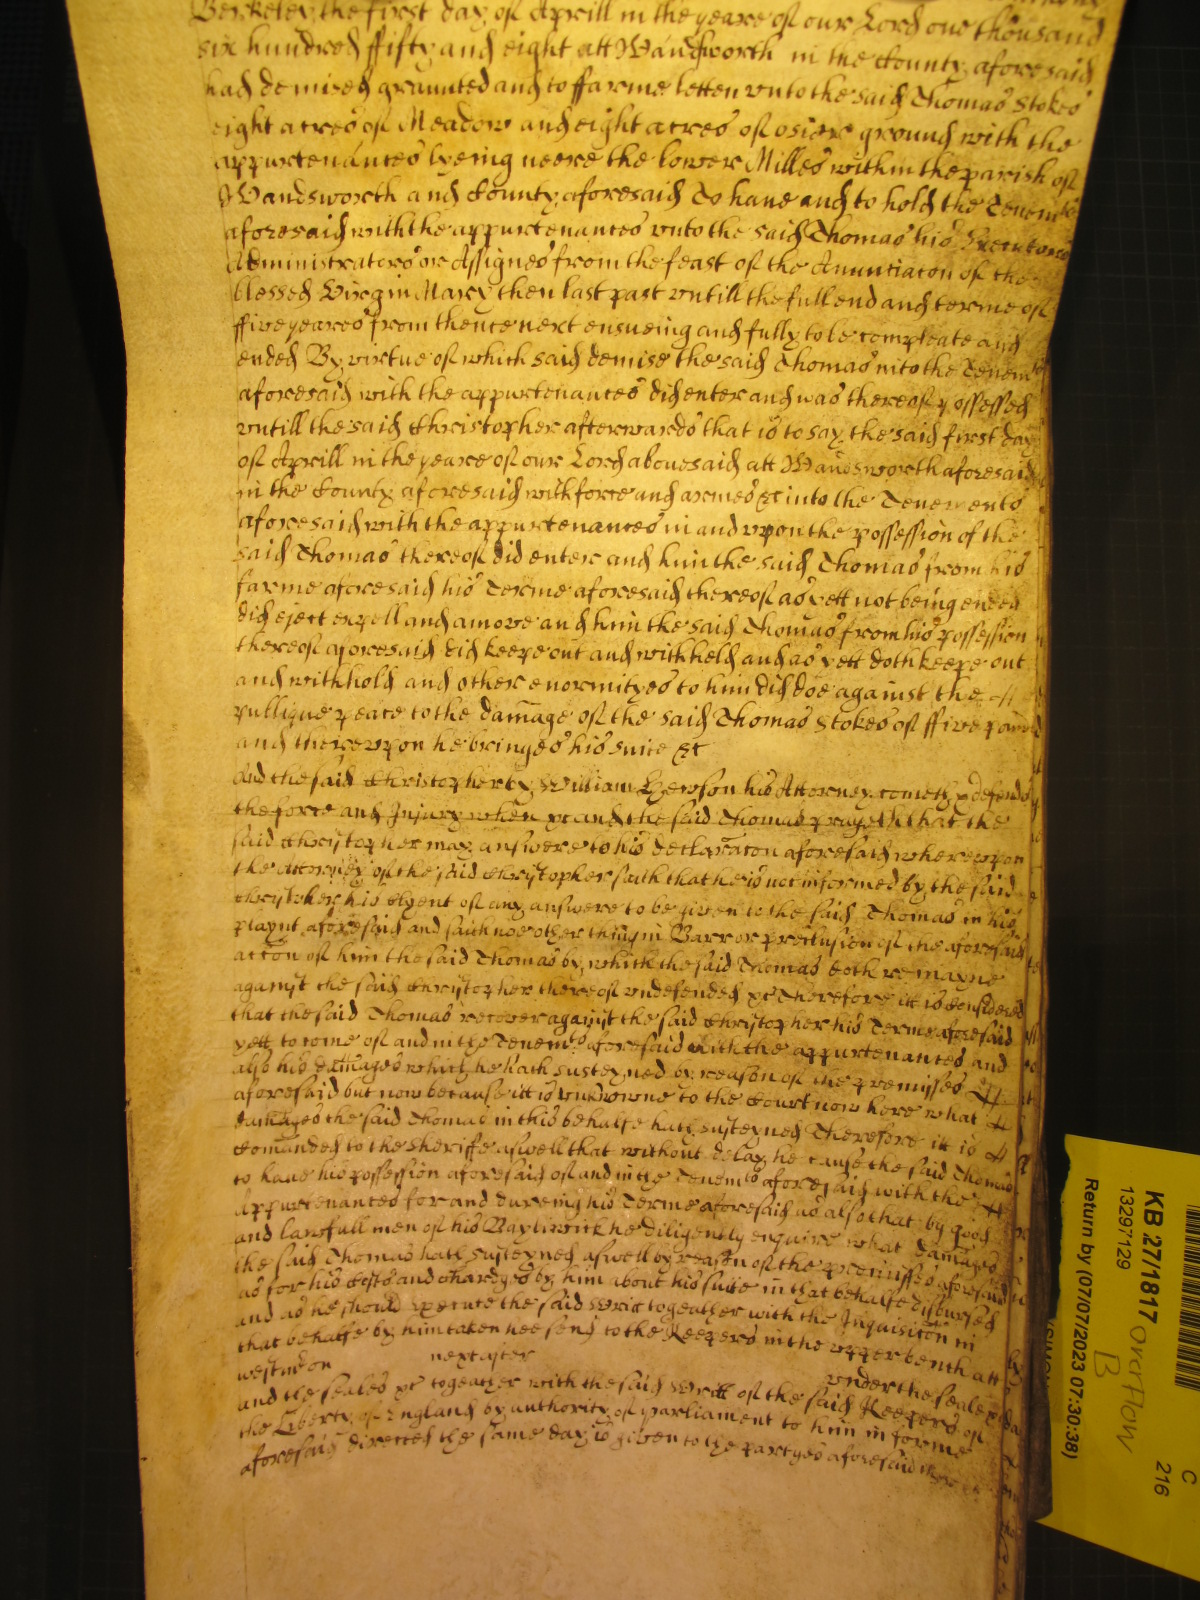 Berkeley the first day of Aprill in the yeare of our Lord one thousand
six hundred ffifty and eight att Wandsworth in the County aforesaid
had demised graunted and to ffarme letten vnto the said Thomas Stokes
eight acres of Meadow and eight acres of osier ground with the
appurtenances lyeing neere the lower Milles within the parish of
Wandsworth and County aforesaid To haue and to hold the Tenemts
aforesaid with the appurtenances vnto the said Thomas his Executors
Administrators or Assignes from the feast of the Anunciacon of the
blessed Virgin Mary then last past vntill the full end and terme of
ffive yeares from thence next ensueing and fully to be compleate and
ended By virtue of which said demise the said Thomas into the Tenemts
aforesaid with the appurtenances did enter and was thereof possessed
vntill the said Christopher afterwards that is to say the said first day
of Aprill in the yeare of our Lord abouesaid att Wandsworth aforesaid
in the County aforesaid with force and armes &c into the Tenements
aforesaid with the appurtenances in and vpon the possession of the
said Thomas thereof did enter and him the said Thomas from his
farme aforesaid his Terme aforesaid thereof as yett not being ended
did eject expell and amove and him the said Thomas from his possession
thereof aforesaid did keepe out and withheld and as yett doth keepe out
and withhold and other enormityes to him did doe against the
publique peace to the damage of the said Thomas Stokes of ffive pound
and therevpon he bringes his suite &c
And the said Christopher by William Hewson his Attorney cometh & defends
the force and Injury when &c and the said Thomas prayeth that the
said Christopher may answere to his declaracon aforesaid wherevpon
the Attorney of the said Christopher saith that he is not informed by the said
Christopher his Clyent of any answere to be given to the said Thomas in his
playnt aforesaid and saith noe other thing in Barr or preclusion of the aforesaid
accon of him the said Thomas by which the said Thomas doth remayne
against the said Christopher thereof vndefended &c Therefore itt is Considered
that the said Thomas recover against the said Christopher his Terme aforesaid
yett to come of and in the Tenemts aforesaid with the appurtenances and
also his damages which he hath susteyned by reason of the premisses
aforesaid but now because itt is vnknowne to the Court now here what
damages the said Thomas in this behalfe hath susteyned Therefore itt is
Comanded to the Sheriffe aswell that without delay he cause the said Thomas
to haue his possession aforesaid of and in the Tenemts aforesaid with the
Appurtenances for and dureing his Terme aforesaid as also that by good
and lawfull men of his Bayliwick he diligently enquire what damages
the said Thomas hath susteyned aswell by reason of the premisses aforesaid
as for his Costs and Chardges by him about his suite in that behalfe disbursed
and as he should execute the said Writ togeather with the Inquisicon in
that behalfe by him taken hee send to the Keepers in the vpper bench att
westmr on next after vnder the seale &c
and the seales &c togeather with the said Writt of the said Keepers of
the Liberty of England by authority of parliament to him in forme
aforesaid directed the same day is given to the partyes aforesaid there
KB 27/1817
overflow
B
13297129
Return by (07/07/2023 07:30:38)
C
216